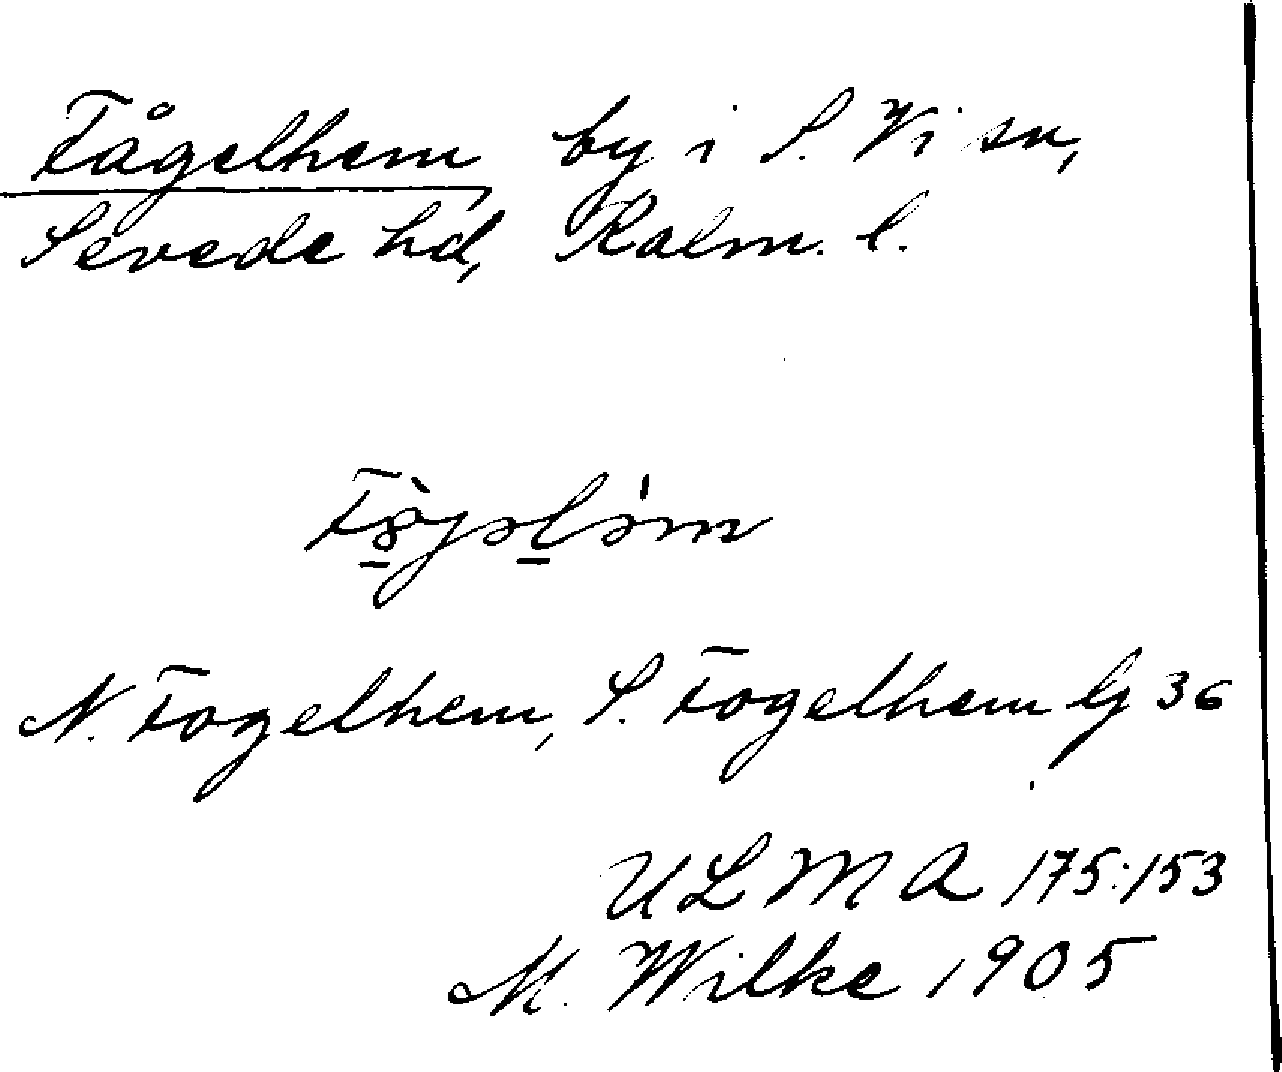 Fågelhem by i S. Vi sn,
Sevede hd, Kalm. l.
N. Fogelhem, S. Fogelhem Gg 36
ULMA 175:153
M. Wilke 1905